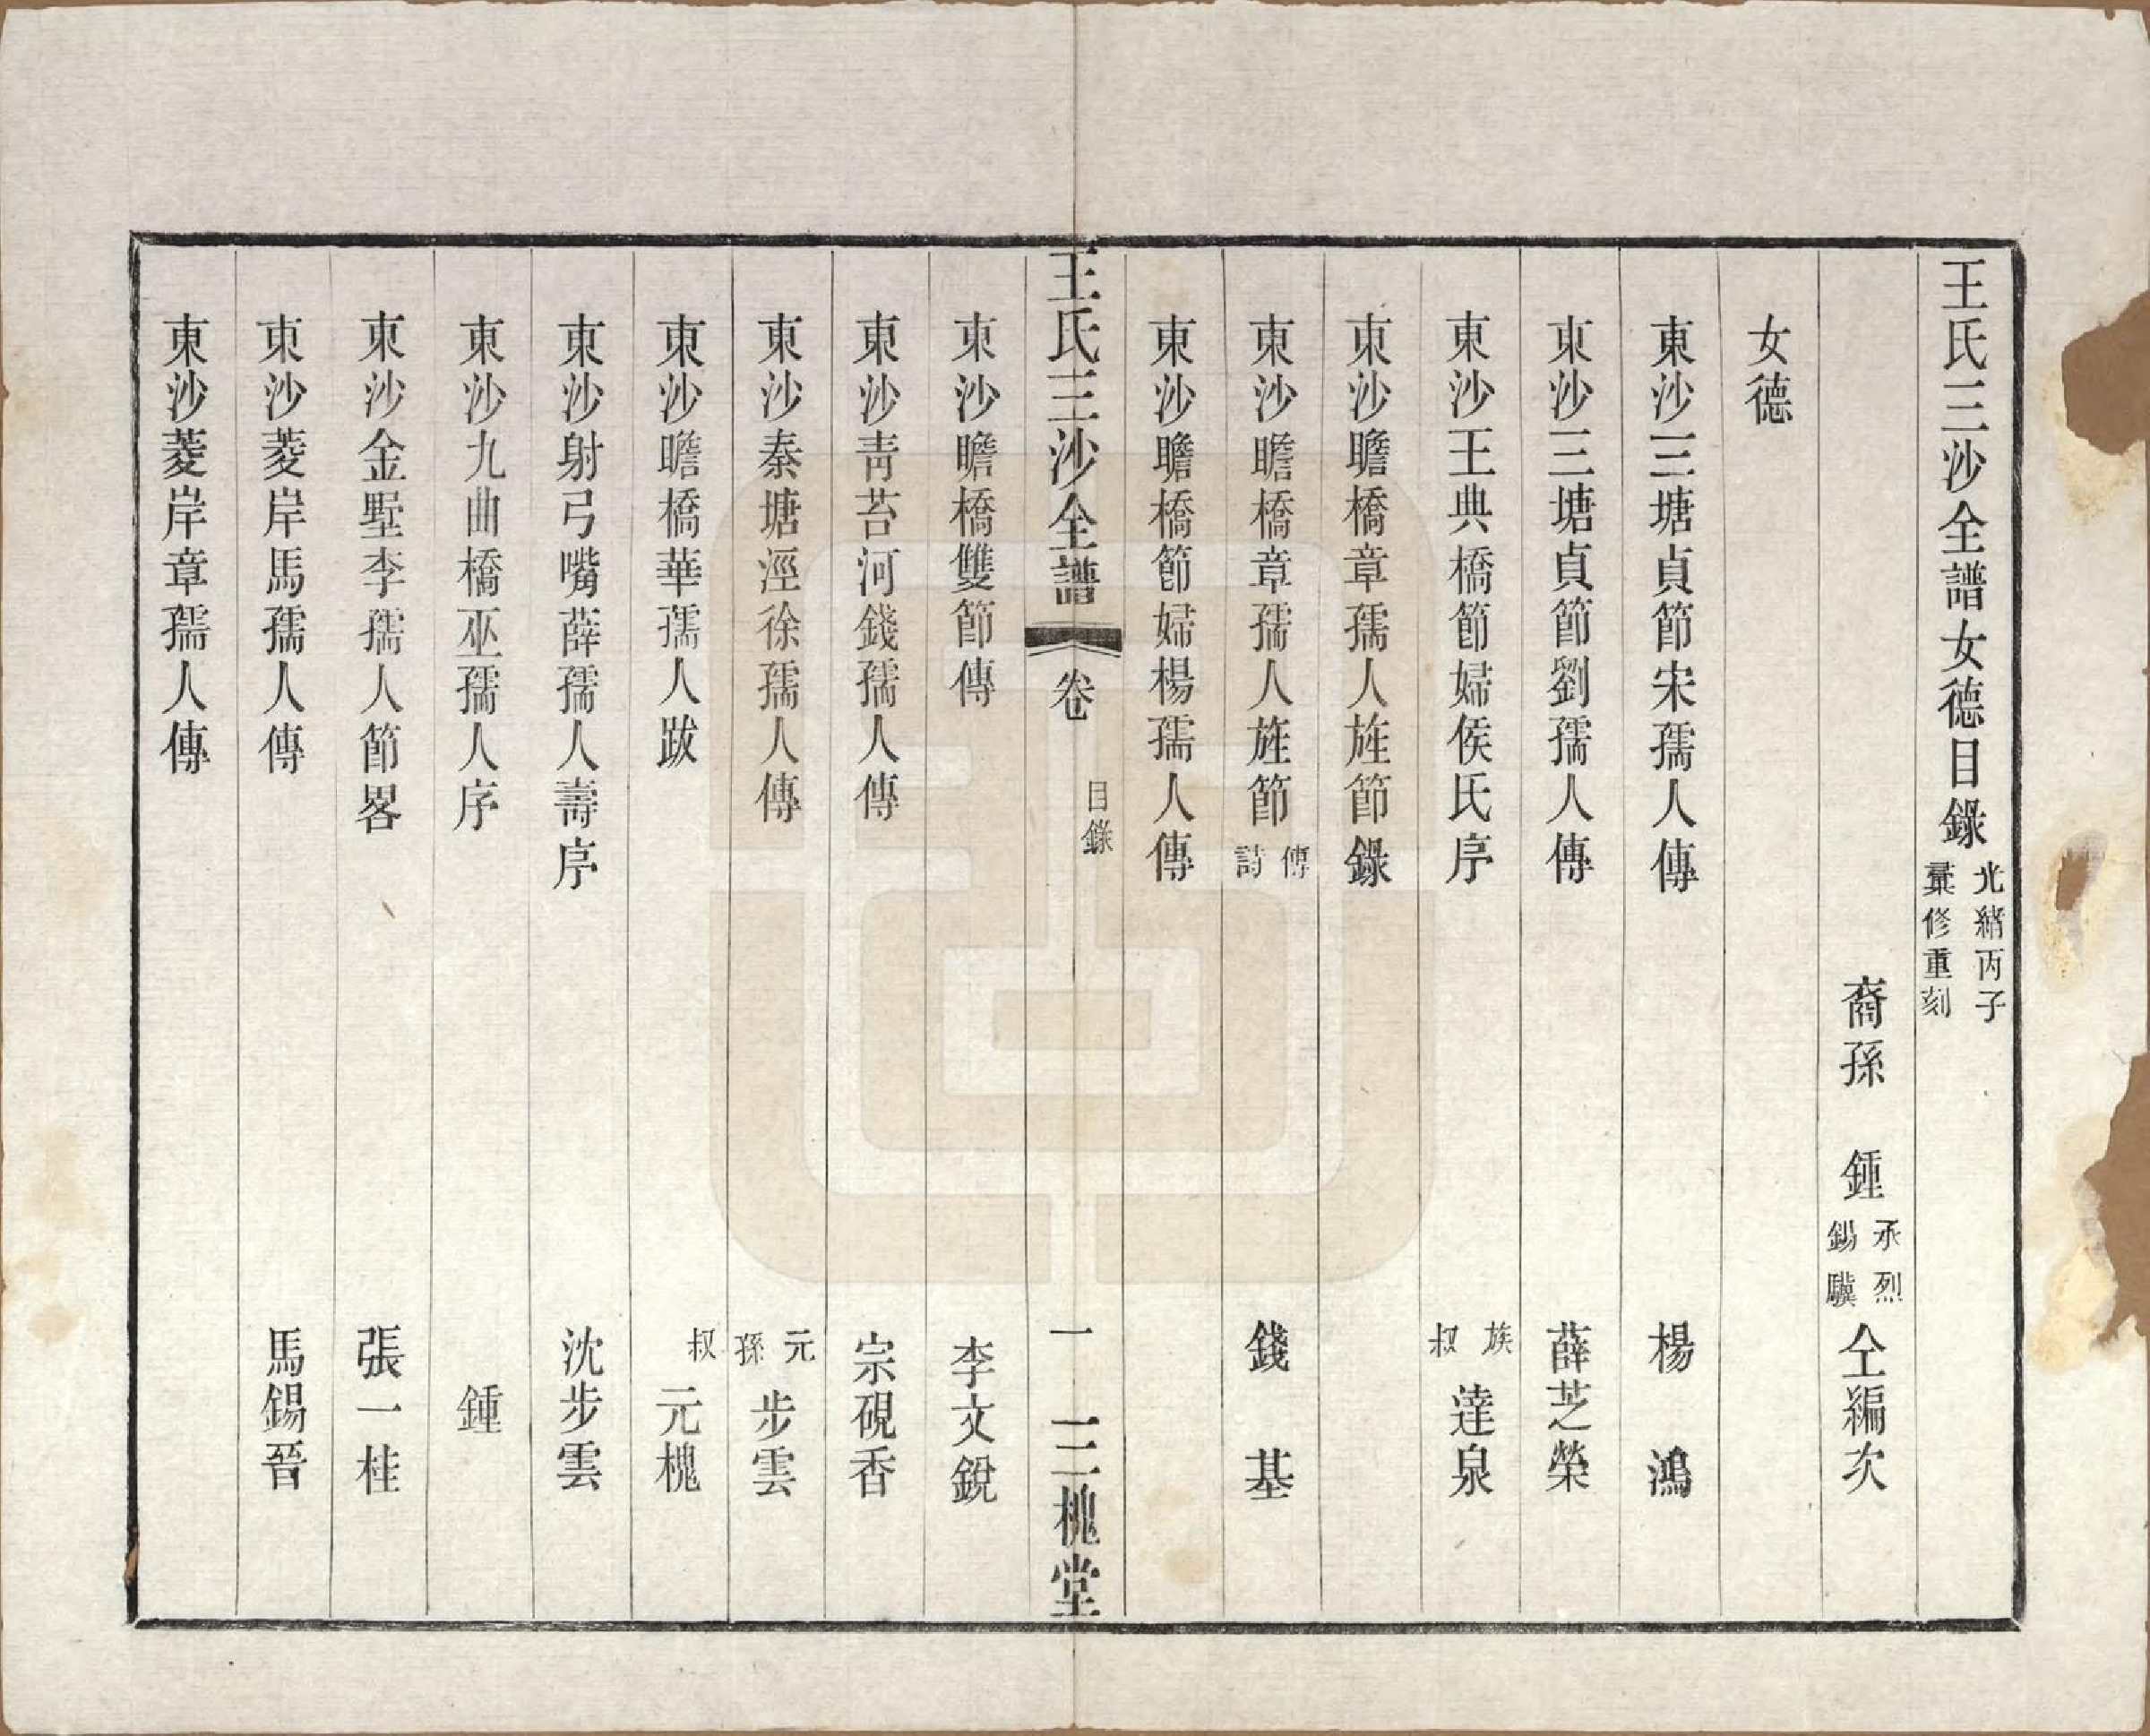 王氏三沙全譜女德目錄 光緒丙子彚修重刻
裔孫 鍾 承烈 錫驥 仝編次
女德
東沙三塘貞節宋孺人傳 楊鴻
東沙三塘貞節劉孺人傳 薛芝榮
東沙王典橋節婦侯氏序 族叔 達泉
東沙瞻橋章孺人旌節錄
東沙瞻橋章孺人旌節傳詩 錢基
東沙瞻橋節婦楊孺人傳
王氏三沙全譜 卷 目錄 一 三槐堂
東沙瞻橋雙節傳 李文銳
東沙靑苔河錢孺人傳 宗硯香
東沙秦塘涇徐孺人傳 元孫 步雲
東沙瞻橋華孺人跋 叔 元槐
東沙射弓嘴薛孺人壽序 沈步雲
東沙九曲橋巫孺人序 鍾
東沙金墅李孺人節畧 張一桂
東沙菱岸馬孺人傳 馬錫晉
東沙菱岸章孺人傳